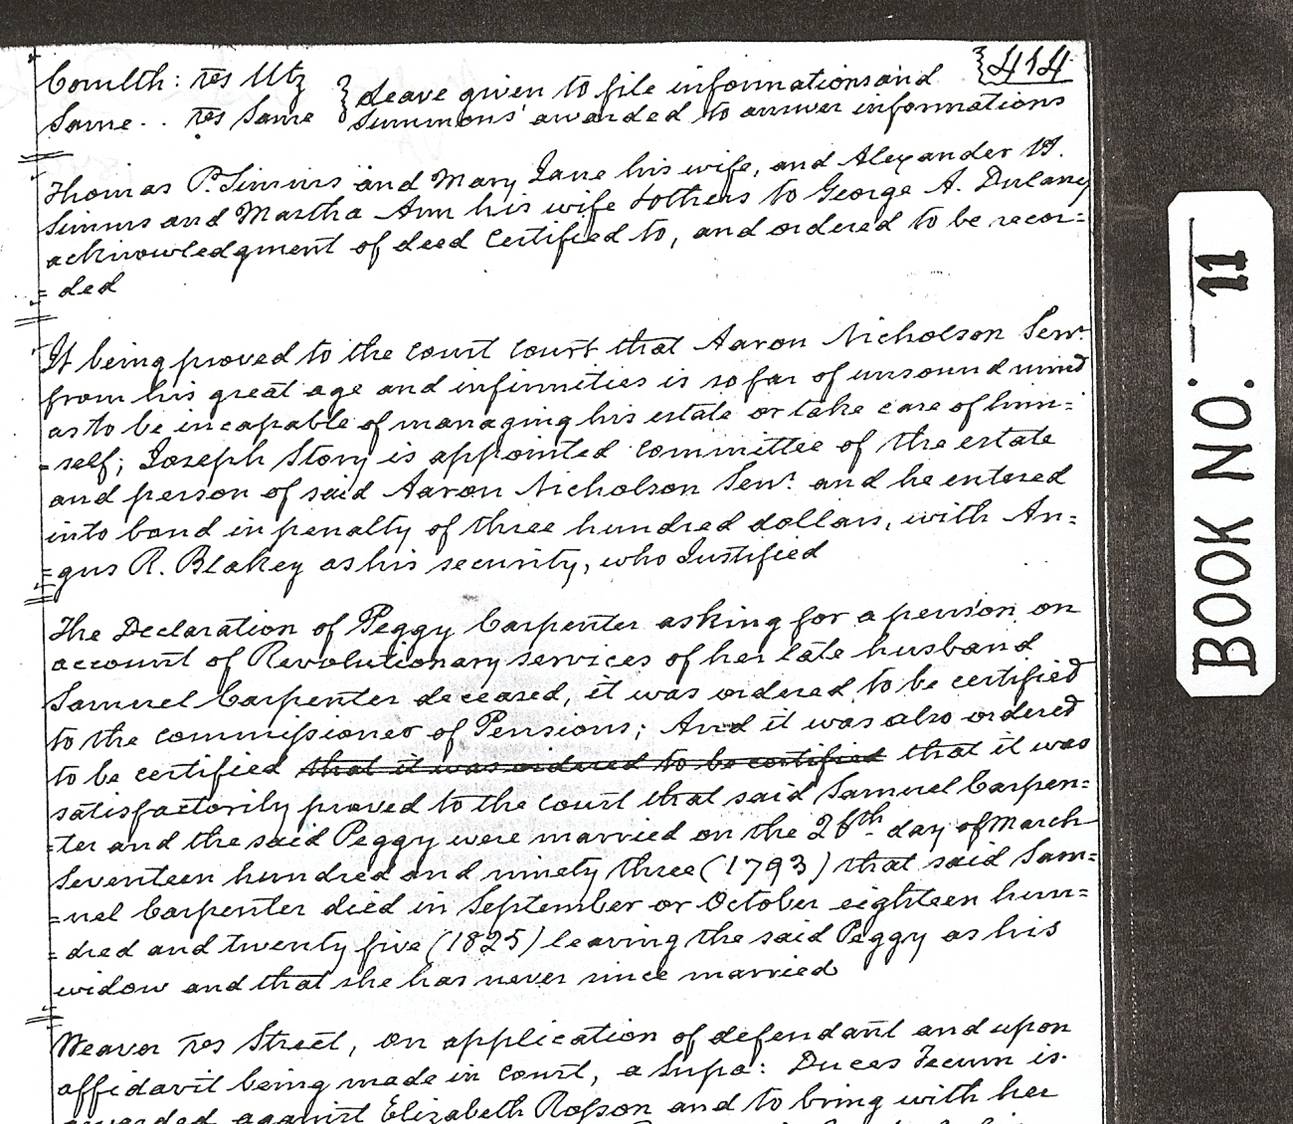 414
Comlth: vs Utz } Leave given to file informations and
Same .. vs Same } Summons' awarded to answer informations
Thomas P. Simms and Mary Jane his wife, and Alexander H.
Simms and Martha Ann his wife & others to George A. Dulaney
acknowledgment of deed Certified to, and ordered to be recor=
=ded
It being proved to the court court that Aaron Nicholson Senr.
from his great age and infirmities is so far of unsound mind
as to be incapable of managing his estate or take care of him=
=self; Joseph Story is appointed committee of the estate
and person of said Aaron Nicholson Senr. and he entered
into bond in penalty of three hundred dollars, with An=
=gus R. Blakey as his security, who Justified
The Declaration of Peggy Carpenter asking for a pension on
account of Revolutionary services of her late husband
Samuel Carpenter deceased, it was ordered to be certified
to the commissioner of Pensions; And it was also ordered
to be certified that it was ordered to be certified that it was
satisfactorily proved to the court that said Samuel Carpen=
=ter and the said Peggy were married on the 26th day of March
Seventeen hundred and ninety three (1793) that said Sam=
=uel Carpenter died in September or October eighteen hun=
=dred and twenty five (1825) leaving the said Peggy as his
widow and that she has never since married
Weaver vs Street, On application of defendant and upon
affidavit being made in court, a Supa: Duces Tecum is
awarded against Elizabeth Rosson and to bring with her
BOOK NO: 11